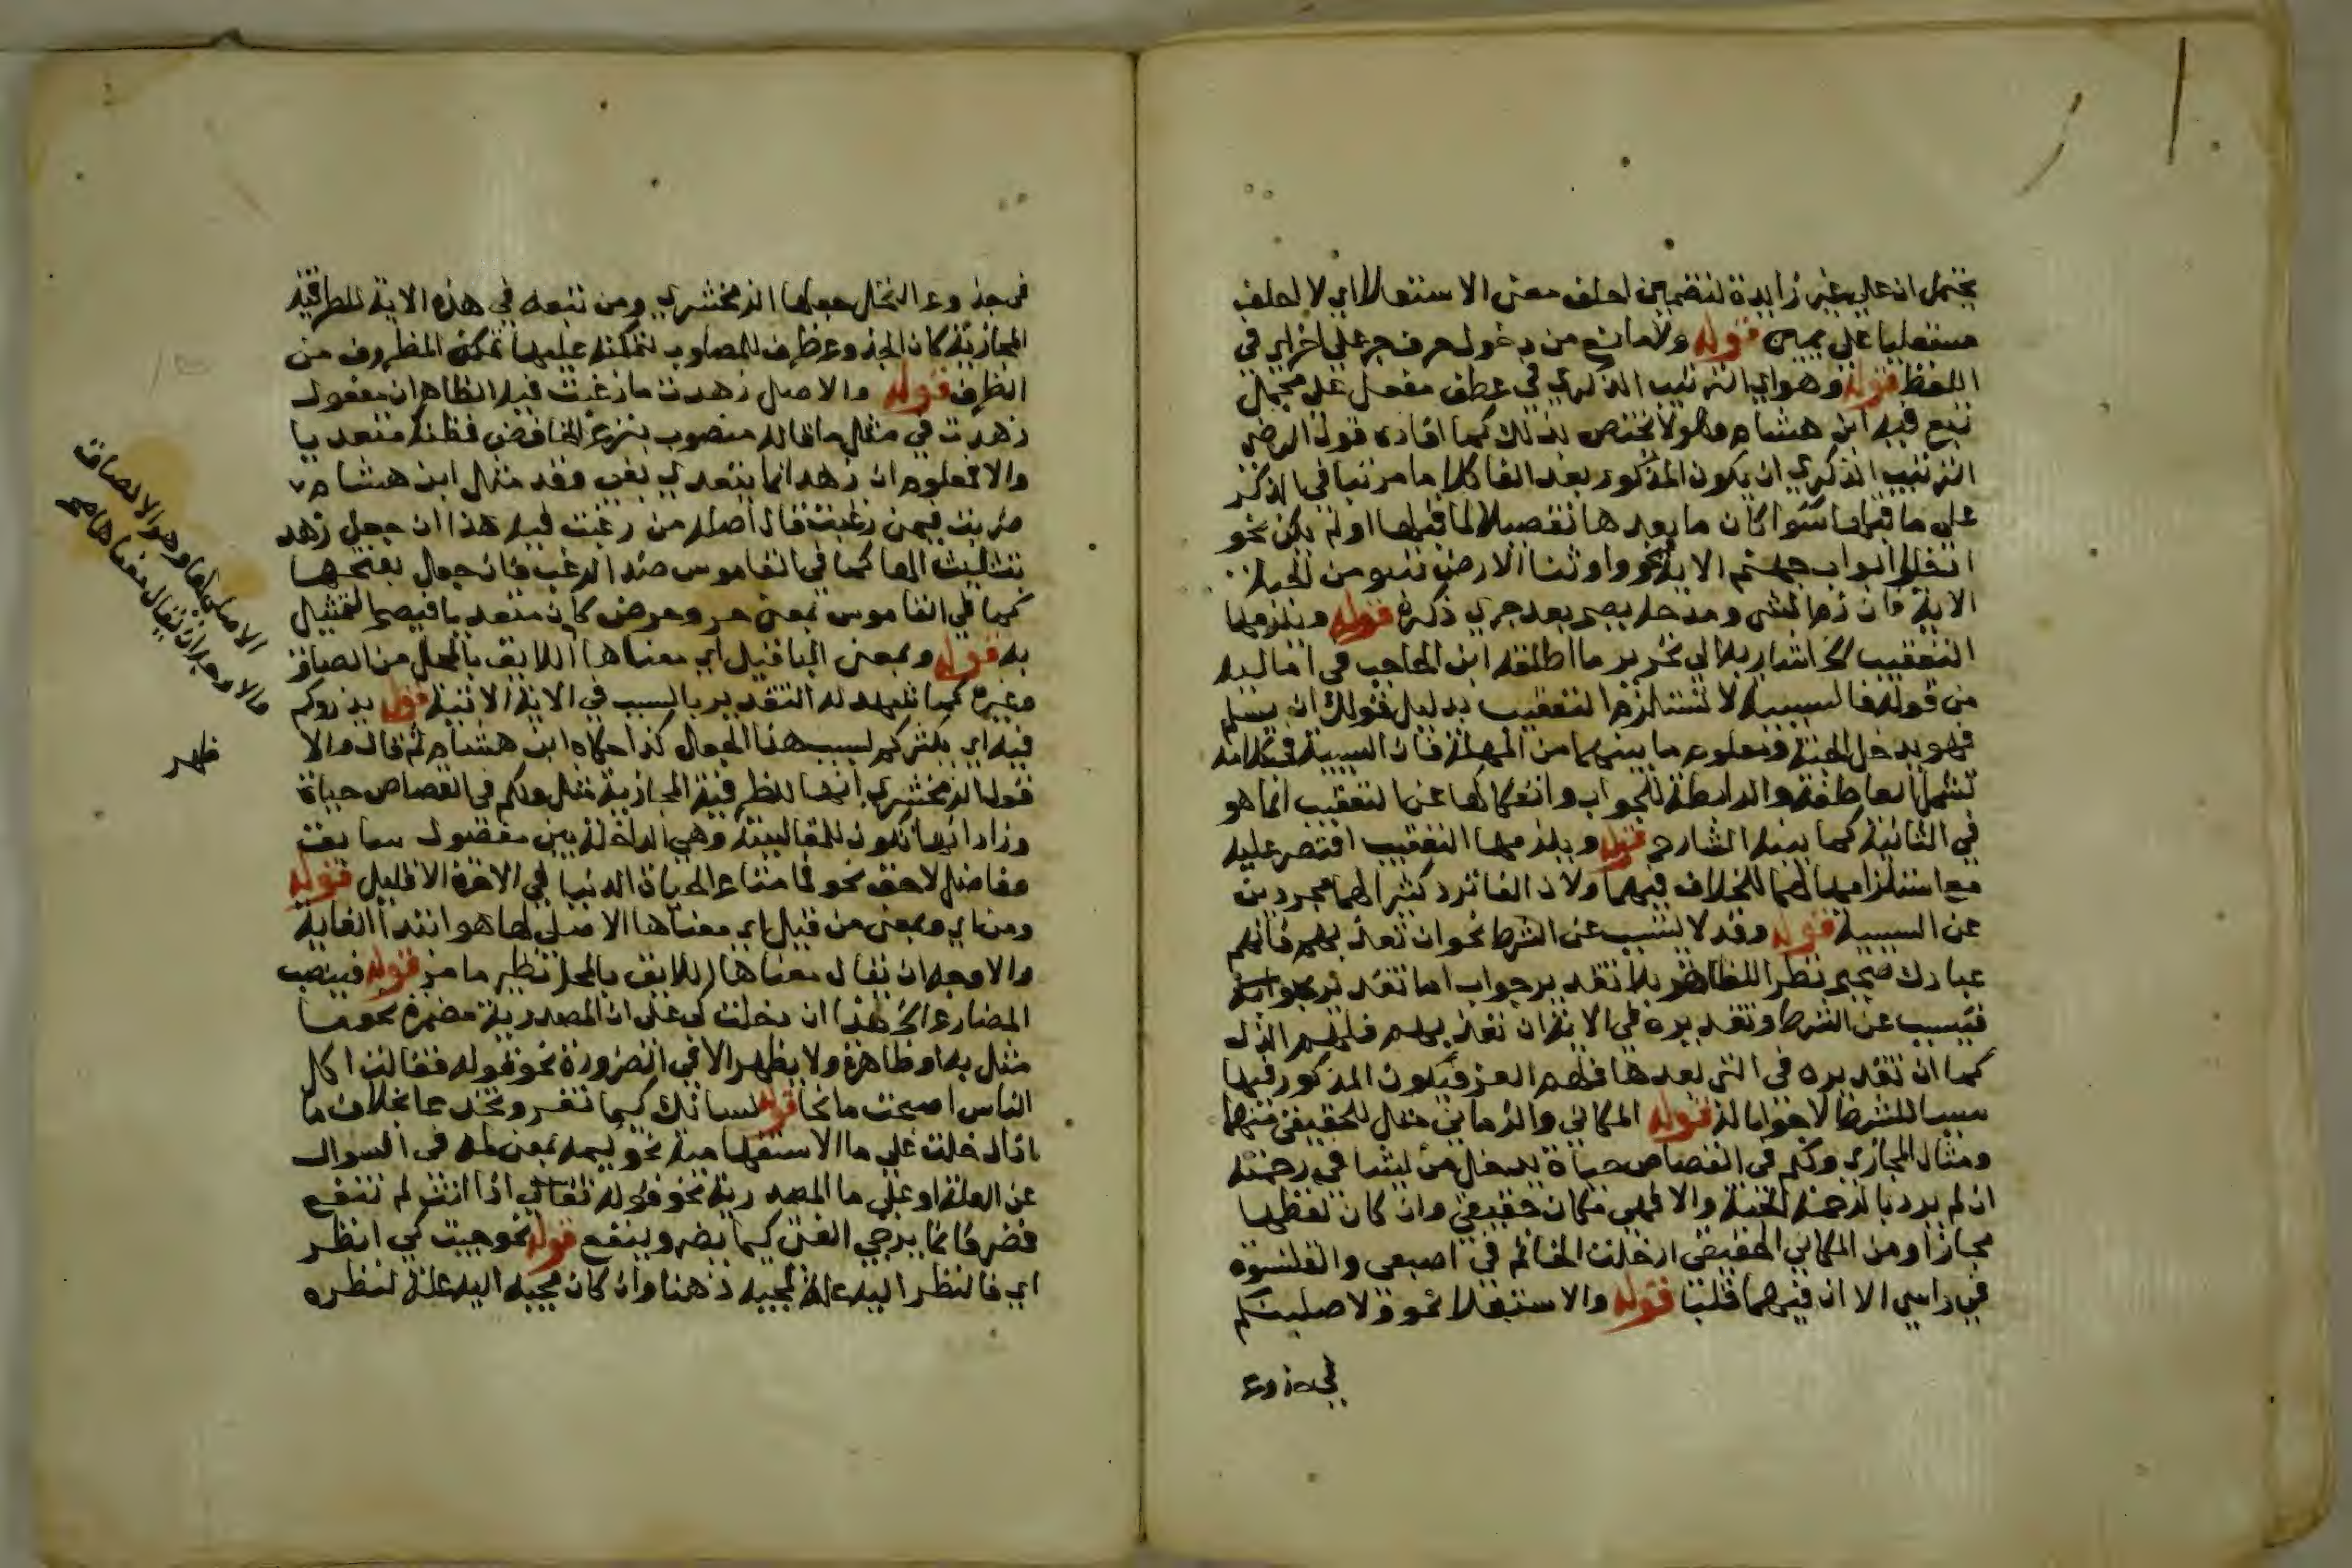 يحتمل ان على غير زايدة لتضمين احلف معنى الاستعلا اي لا احلف
مستعليا على يمين قوله ولا مانع من دخول حرف جر على اخراي في
اللفظ قوله وهو اي الترتيب الذكري في عطف مفصل على مجمل
تبع فيه ابن هشام وهو لا يختص بذلك كما افاده قول الرضي
الترتيب الذكري ان يكون المذكور بعد الفا كلاما مرتبا في الذكر
على ما قبلها سوا كان ما بعدها تفصيلا لما قبلها او لم يكن نحو
ادخلوا ابواب جهنم الاية ونحو واورثنا الارض نتبو من الجنة
الاية فان ذم الشي ومدحه يصح بعد جري ذكره قوله ويلزمها
التعقيب الخ اشار به الي تحرير ما اطلقه ابن الحاجب في اماليه
من قوله فا السببية لا تستلزم التعقيب بدليل قولك ان يسلم
فهو يدخل الجنة ومعلوم ما بينهما من المهلة فان السببية في كلامه
تشمل العاطفة والرابطة للجواب وانفكاكها عن التعقيب انما هو
في الثانية كما بينه الشارح قوله ويلزمها التعقيب اقتصر عليه
مع استلزامها لهما للخلاف فيهما ولان الفا ترد كثيرا لهما مجردين
عن السببية قوله وقد لا يتسبب عن الشرط نحو ان تعذبهم فانهم
عبادك صحيح نظرا للظاهر بلا تقدير جواب اما تقدير جوابه
فيتسبب عن الشرط وتقديره في الاية ان تعذبهم فلهم الذل
كما ان تقديره في التي بعدها فلهم العز فيكون المذكور فيها
سببا للشرط لا جوابا له قوله المكاني والزماني مثال للحقيقي منهما
ومثال المجازي ولكم في القصاص حياة يدخل من يشا في رحمته
ان لم يرد بالرحمة الجنة والا فهي مكان حقيقي وان كان لفظها
مجازا ومن المكاني الحقيقي ادخلت الخاتم في اصبعي والقلنسوة
في راسي الا ان فيهما قلبا قوله والاستعلا نحو ولاصلبنكم
في جذوع
في جذوع النخل جعلها الزمخشري ومن تبعه في هذه الاية للظرفية
المجازية كان الجذوع ظرف للمصلوب لتمكنه عليها تمكن المظروف من
الظرف قوله والاصل زهدت ما رغبت فيه الظاهر ان مفعول
زهدت في مثل ما قاله منصوب بنزع الخافض فظنه متعديا
والا فمعلوم ان زهد انما يتعدي بفي وقد مثل ابن هشام
ضربت فيمن رغبت قال اصله من رغبت فيه هذا ان جعل زهد
بتثليث الها كما في القاموس ضد الرغب فان جعل بفتحها
كما في القاموس بمعنى حزر وخرص كان متعديا فيصح التمثيل
به قوله وبمعنى البا قيل اي معناها اللايق بالمحل من الصاق
وغيره كما شهد له التقدير بالسبب في الاية الاتية قوله يذروكم
فيه اي يكثركم بسبب هذا الجعل كذا حكاه ابن هشام ثم قال والا
قول الزمخشري انها للظرفية المجازية مثل ولكم في القصاص حياة
وزاد انها تكون للمقايسة وهي الداخلة بين مفضول سابق
وفاضل لاحق نحو فما متاع الحياة الدنيا في الاخرة الا قليل قوله
ومن اي وبمعنى من قيل اي معناها الاصلي لها هو ابتدا الغاية
والاوجه ان يقال معناها اللايق بالمحل نظير ما مر قوله فينصب
المضارع الخ هذا ان دخلت كي على ان المصدرية مضمرة نحو ما
مثل به او ظاهرة ولا يظهر الا في الضرورة نحو قوله فقالت اكل
الناس اصبحت مانحا قوله لسانك كيما تغر وتخدعا بخلاف ما
اذا دخلت على ما الاستفهامية نحو كيمه بمعنى لمه في السوال
عن العلة او على ما المصدرية نحو قوله تعالى اذا انت لم تنفع
فضر فانما يرجى الفتى كيما يضر وينفع قوله نحو جيت كي انظر
اي فالنظر اليه علة لمجيه ذهنا وان كان مجيه اليه علة لنظره
الاصلي لها وهو الالصاق
والاوجه ان يقال معناها
ظهر